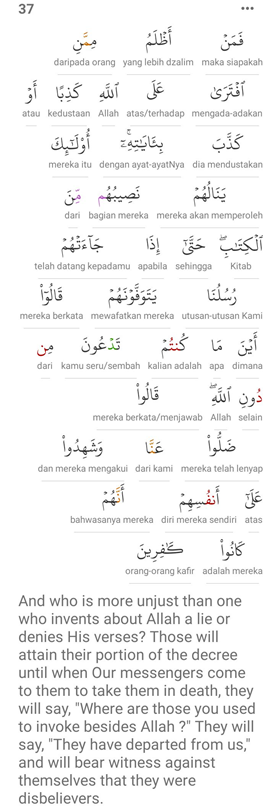 37
فَمَنْ أَظْلَمُ مِمَّنِ
maka siapakah yang lebih dzalim daripada orang
ٱفْتَرَىٰ عَلَى ٱللَّهِ كَذِبًا أَوْ
mengada-adakan atas/terhadap Allah kedustaan atau
كَذَّبَ بِـَٔايَـٰتِهِۦٓ ۚ أُو۟لَـٰٓئِكَ
dia mendustakan dengan ayat-ayatNya mereka itu
يَنَالُهُمْ نَصِيبُهُم مِّنَ
mereka akan memperoleh bagian mereka dari
ٱلْكِتَـٰبِ ۖ حَتَّىٰٓ إِذَا جَآءَتْهُمْ
Kitab sehingga apabila telah datang kepadamu
رُسُلُنَا يَتَوَفَّوْنَهُمْ قَالُوٓا۟
utusan-utusan Kami mewafatkan mereka mereka berkata
أَيْنَ مَا كُنتُمْ تَدْعُونَ مِن
dimana apa kalian adalah kamu seru/sembah dari
دُونِ ٱللَّهِ ۖ قَالُوا۟
selain Allah mereka berkata/menjawab
ضَلُّوا۟ عَنَّا وَشَهِدُوا۟
mereka telah lenyap dari kami dan mereka mengakui
عَلَىٰٓ أَنفُسِهِمْ أَنَّهُمْ
atas diri mereka sendiri bahwasanya mereka
كَانُوا۟ كَـٰفِرِينَ
adalah mereka orang-orang kafir
And who is more unjust than one
who invents about Allah a lie or
denies His verses? Those will
attain their portion of the decree
until when Our messengers come
to them to take them in death, they
will say, "Where are those you used
to invoke besides Allah ?" They will
say, "They have departed from us,"
and will bear witness against
themselves that they were
disbelievers.